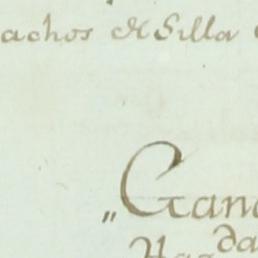 achos de Silla
„ Gana
da